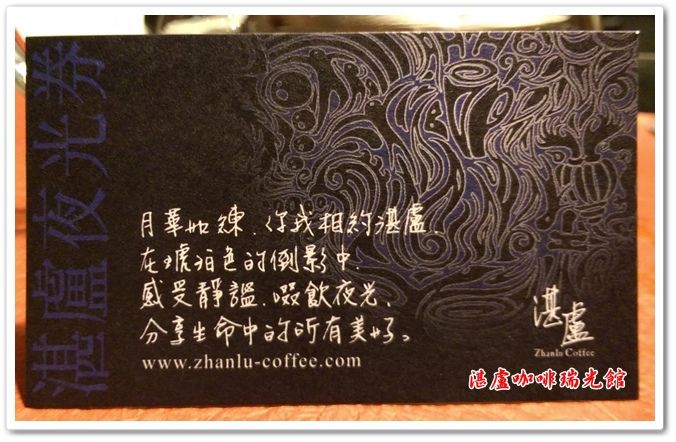 湛盧夜光券
月華如練、你我相約湛盧、
在琥珀色的倒影中、
感受靜謐、啜飲夜光、
分享生命中的所有美好。
www.zhanlu-coffee.com
湛盧
Zhanlu Coffee
湛盧咖啡瑞光館